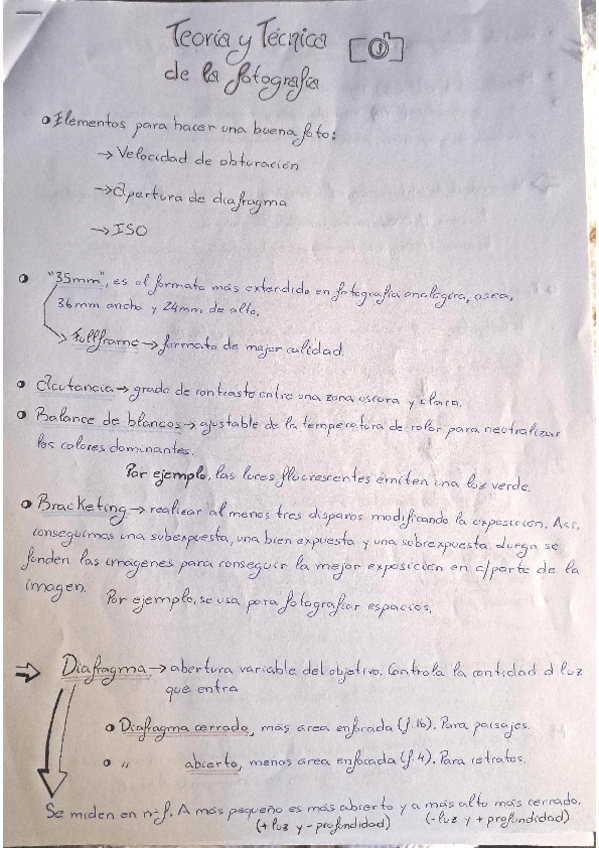 Teoría y Técnica
de la fotografía
• Elementos para hacer una buena foto:
→ Velocidad de obturación
→ Apertura de diafragma
→ ISO
• "35mm", es el formato más extendido en fotografía analógica, osea,
36mm ancho y 24mm de alto.
Fullframe → formato de mejor calidad.
• Acutancia → grado de contraste entre una zona oscura y clara.
• Balance de blancos → ajustable de la temperatura de color para neutralizar
los colores dominantes.
Por ejemplo, las luces fluorescentes emiten una luz verde.
• Bracketing → realizar al menos tres disparos modificando la exposición. Así,
conseguimos una subexpuesta, una bien expuesta y una sobrexpuesta. Luego se
funden las imágenes para conseguir la mejor exposición en c/parte de la
imagen. Por ejemplo, se usa para fotografiar espacios.
⇒ Diafragma → abertura variable del objetivo. Controla la cantidad d luz
que entra
• Diafragma cerrado, más area enfocada (f.16). Para paisajes.
• " abierto, menos area enfocada (f.4). Para retratos.
Se miden en nº f. A más pequeño es más abierto y a más alto más cerrado.
(+ luz y - profundidad) (- luz y + profundidad)